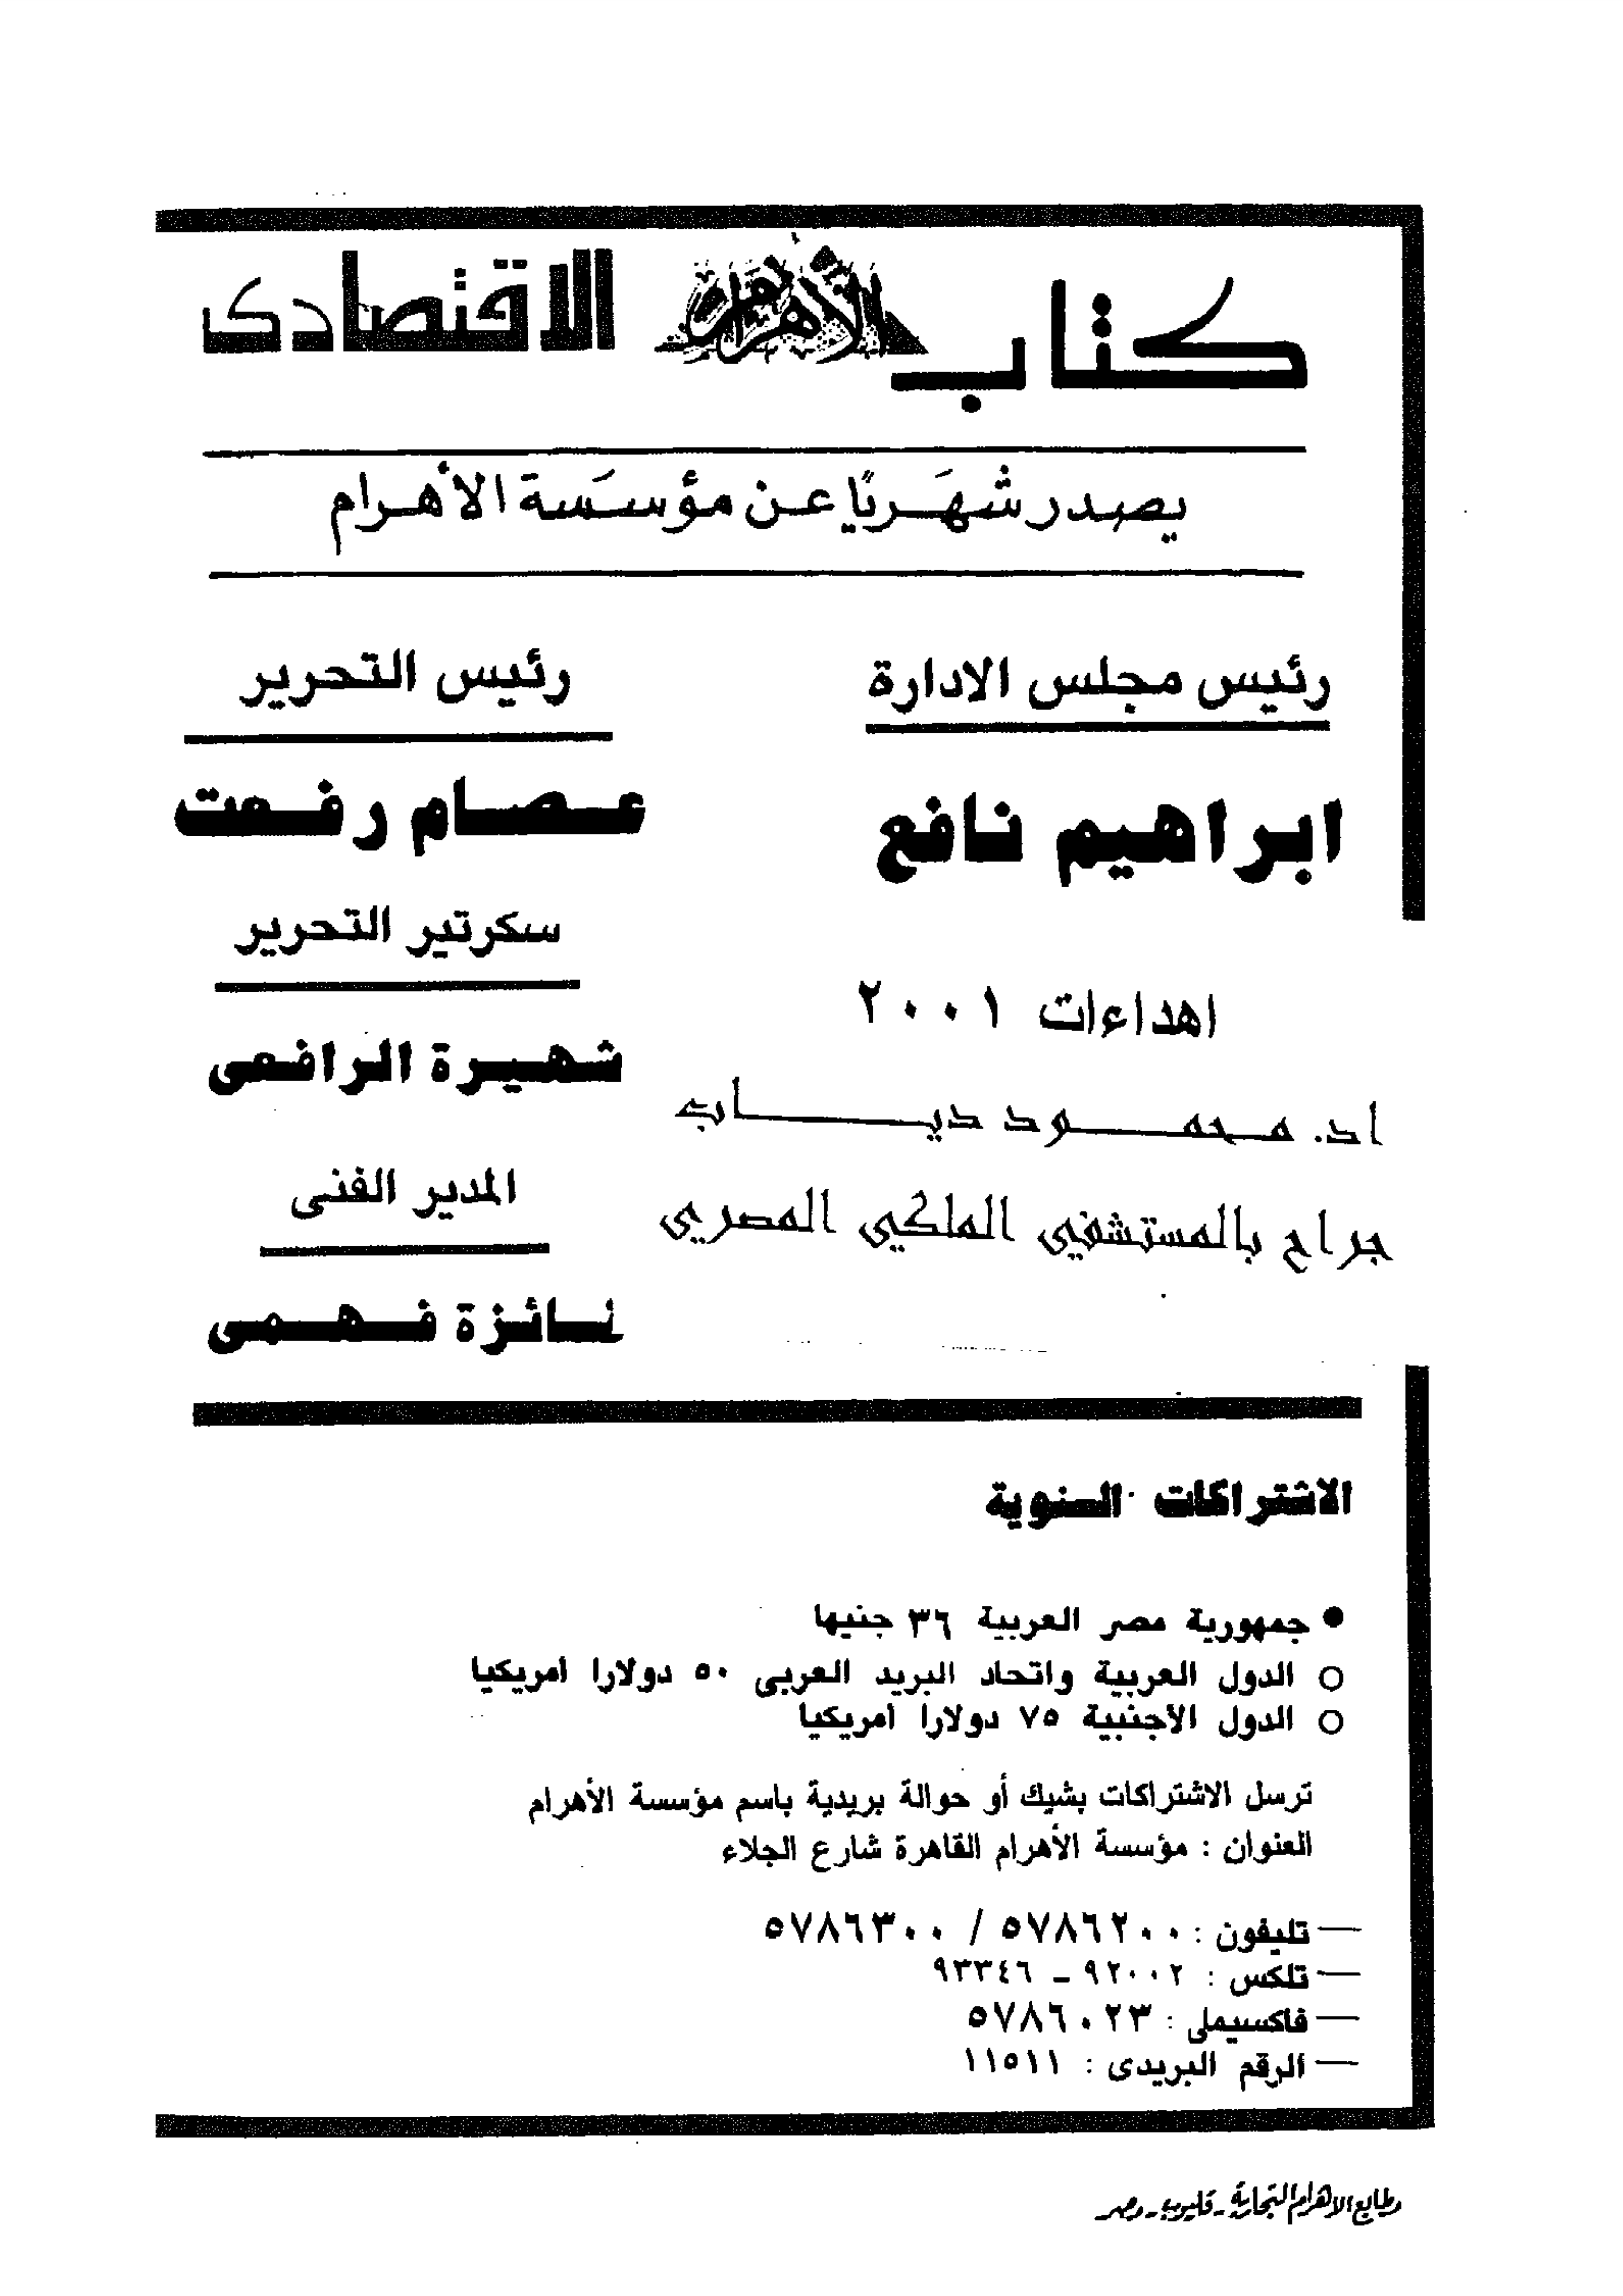 كتاب الأهرام الاقتصادى
يصدر شهريًا عن مؤسسة الأهرام
رئيس مجلس الادارة
ابراهيم نافع
رئيس التحرير
عصام رفعت
سكرتير التحرير
شهيرة الرافعى
المدير الفنى
نائزة فهمى
اهداءات ٢٠٠١
اد. محمود دياب
جراح بالمستشفي الملكي المصري
الاشتراكات السنوية
● جمهورية مصر العربية ٣٦ جنيها
○ الدول العربية واتحاد البريد العربى ٥٠ دولارا أمريكيا
○ الدول الأجنبية ٧٥ دولارا أمريكيا
ترسل الاشتراكات بشيك أو حوالة بريدية باسم مؤسسة الأهرام
العنوان : مؤسسة الأهرام القاهرة شارع الجلاء
— تليفون : ٥٧٨٦٢٠٠ / ٥٧٨٦٣٠٠
— تلكس : ٩٢٠٠٢ - ٩٣٣٤٦
— فاكسيملى : ٥٧٨٦٠٢٣
— الرقم البريدى : ١١٥١١
مطابع الاهرام التجارية - قليوب - مصر